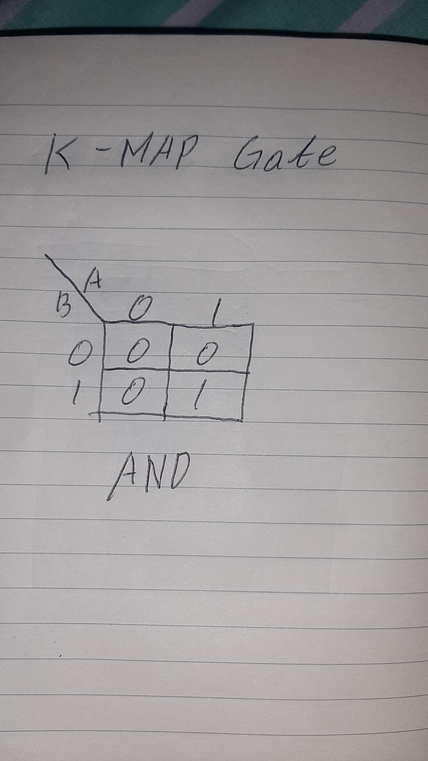 K-MAP Gate
A
B 0 1
0 0 0
1 0 1
AND